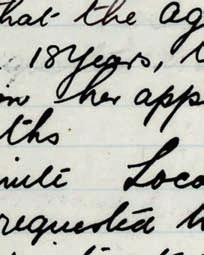 hat the ag
18 Years,
her app
ths
nite Loca
requested